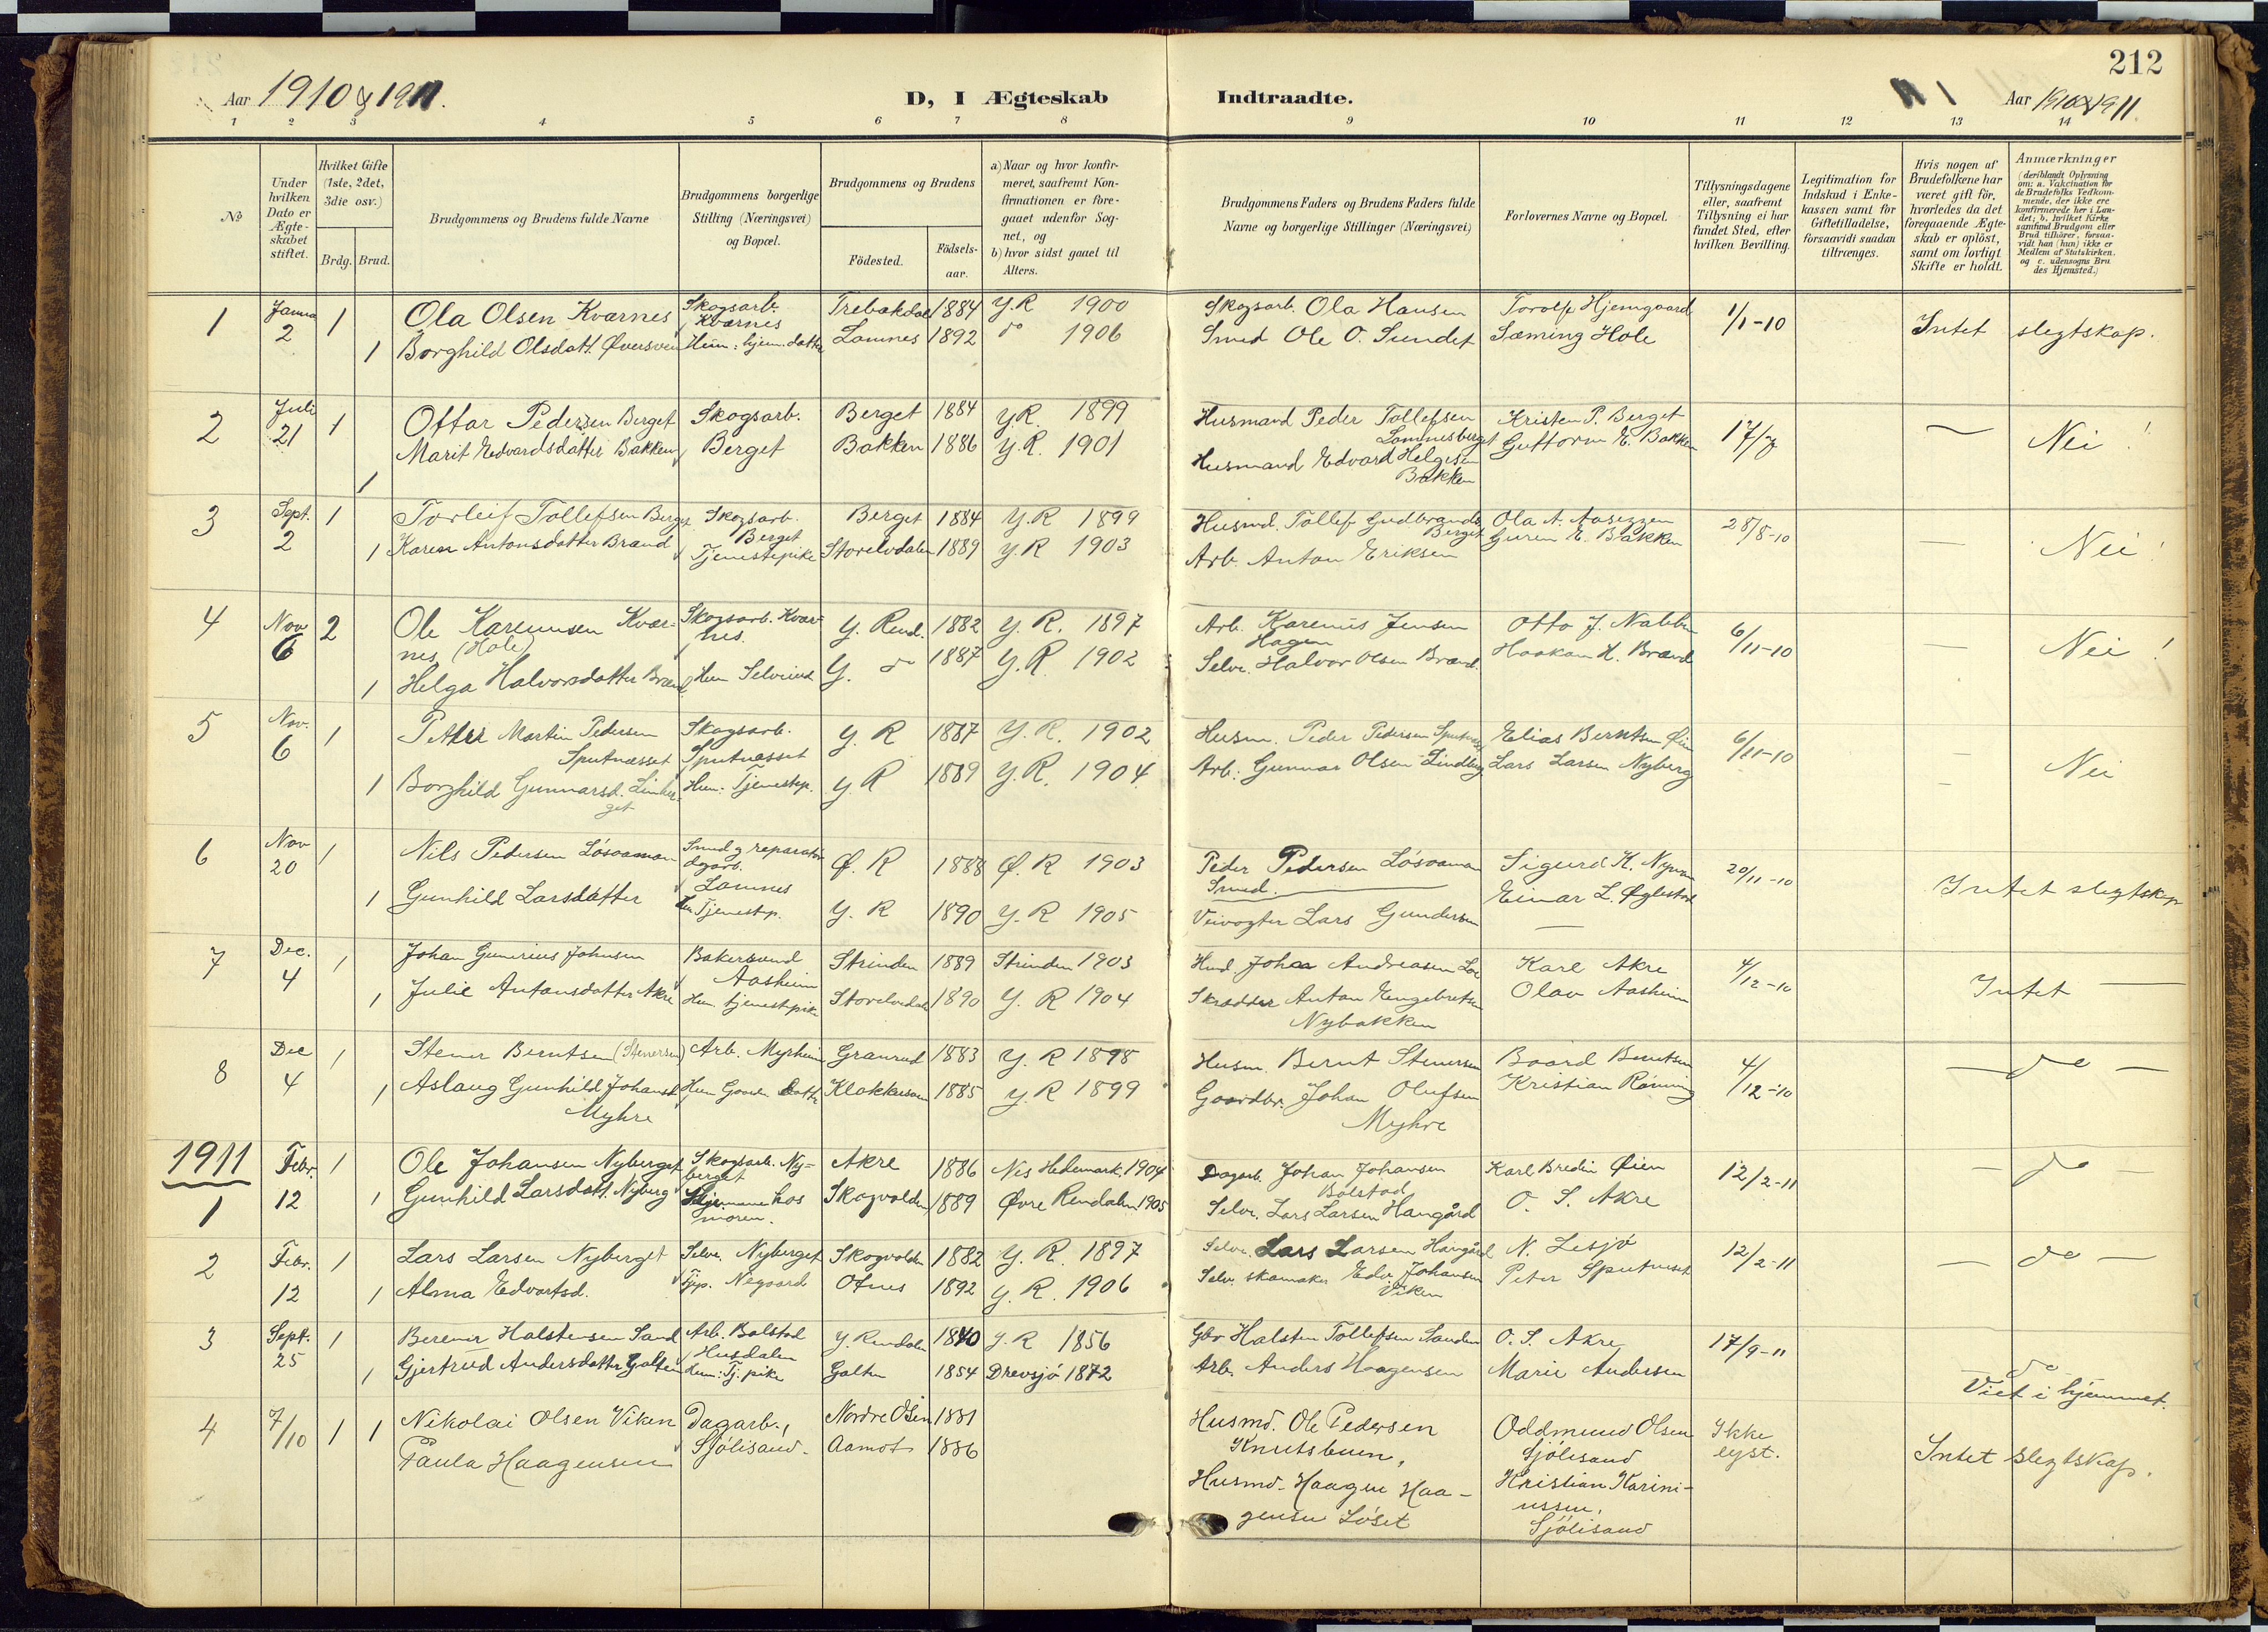 212
Aar 1910 & 1911.
D, I Ægteskab
Indtraadte.
Aar 1910 & 1911.
1 2 3 4 5 6 7 8 9 10 11 12 13 14
№
Under hvilken Dato er Ægte-skabet stiftet.
Hvilket Gifte (1ste, 2det, 3die osv.)
Brdg. Brud.
Brudgommens og Brudens fulde Navne
Brudgommens borgerlige Stilling (Næringsvei) og Bopæl.
Brudgommens og Brudens
Födested.
Födsels-aar.
a) Naar og hvor konfir-meret, saafremt Kon-firmationen er fore-gaaet udenfor Sog-net, og
b) hvor sidst gaaet til Alters.
Brudgommens Faders og Brudens Faders fulde Navne og borgerlige Stillinger (Næringsvei)
Forlovernes Navne og Bopæl.
Tillysningsdagene eller, saafremt Tillysning ei har fundet Sted, efter hvilken Bevilling.
Legitimation for Indskud i Enke-kassen samt for Giftetilladelse, forsaavidt saadan tiltrænges.
Hvis nogen af Brudefolkene har været gift för, hvorledes da det foregaaende Ægte-skab er oplöst, samt om lovligt Skifte er holdt.
Anmærkninger (deriblandt Oplysning om: a. Vakcination for de Brudefolks Vedkom-mende, der ikke ere konfirmerede her i Lan-det; b. hvilket Kirke-samfund Brudgom eller Brud tilhører, forsaa-vidt han (hun) ikke er Medlem af Statskirken. og c. udensogns Bru des Hjemsted.)
1 Janua 2 1 Ola Olsen Kværnes Skogsarb. Kværnes 1884 Y.R 1900 Skogsarb. Ola Hansen Torolf Hjemgaard 1/1-10 Intet slegtskap.
1 Borghild Olsdatt. Hum: hjem. datter Lomnes 1892 do 1906 Smed Ole O. Sundet Sæming Hole
2 Juli 21 1 Ottar Pedersen Berget Skogsarb. Berget 1884 Y.R. 1899 Husmand Peder Tollefsen Lomnesberget Kristen P. Berget 17/7 — Nei!
1 Marit Edvardsdatter Bakken Berget Bakken 1886 Y.R. 1901 Husmand Edvard Helgesen Bakken Guttorm E. Bakken
3 Sept. 2 1 Torleif Tollefsen Berget Skogsarb. Berget Berget 1884 Y.R 1899 Husmd. Tollef Gudbrands. Berget Ola A. Aaseggen 28/8-10 — Nei!
1 Karen Antonsdatter Brænd Tjenestepike Storelvdalen 1889 Y.R 1903 Arb. Anton Eriksen E. Bakken
4 Nov 6 2 Ole Kareniusen Kvær-nes (Hole) Skogsarb. Kvær-nes. Y. Rend. 1882 Y.R. 1897 Arb. Karenius Jensen Hagen Otto J. Nabben 6/11-10 — Nei!
1 Helga Halvorsdatter Brænd Hun Y. do 1887 Y.R. 1902 Selve. Halvor Olsen Brænd. Haakon H. Brænd
5 Nov. 6 1 Petter Martin Pedersen Sputnæsset Skogsarb. Sputnæsset Y. R 1887 Y.R. 1902 Husm. Peder Pedersen Elias Berntsen Øien 6/11-10 — Nei
1 Borghild Gunnarsd. Linber-get Hun: Tjenestep. Y. R 1889 Y.R. 1904 Arb: Gunnar Olsen Lindberg Lars Larsen Nyberg
6 Nov 20 1 Nils Pedersen Løsoaman Smed og reparatör Lomnes Ø. R 1888 Ø.R 1903 Peder Pedersen Løsoaman Smed. Sigurd K. 20/11-10 Intet slegtskap
1 Gunhild Larsdatter Hun Tjenestep. Y. R 1890 Y.R 1905 Veivogter Lars Gundersen Einar L. Øglestad
7 Dec. 4 1 Johan Gunerius Johnsen Bakersvend Aasheim Strinden 1889 Strinden 1903 Johan Andreasen Karl Akre 4/12-10 Intet —
1 Julie Antonsdatter Akre Hun. tjenestepike Storelvdal 1890 Y.R 1904 Skrædder Anton Engebretsen Nybakken Olav Aasheim
8 Dec 4 1 Stener Berntsen (Stenersen) Arb. Myrheim Granrud 1883 Y.R 1898 Husm. Bernt Stenersen Baard Berntsen 4/12-10 — do —
1 Aslaug Gunhild Johansd. Myhre Hun Gaardbr. datter 1885 Y.R 1899 Gaardbr. Johan Olufsen Myhre Kristian Rönning
1911
1 Febr. 12 1 Ole Johansen Nyberget Skogsarb. Ny-berget Akre 1886 Nes Hedemark. 1904 Dagarb. Johan Johansen Bolstad Karl Bredin Øien 12/2-11 — do —
1 Gunhild Larsdatt. Nyberg hos moren. Skogvolden 1889 Øvre Rendalen 1905 Selve. Lars Larsen Hangård O. S. Akre
2 Febr. 12 1 Lars Larsen Nyberget Selve. Nyberget Skogvolden 1882 Y.R. 1897 Selve. Lars Larsen Hangård N. Lesjø 12/2-11 — do —
1 Alma Edvartsd. Tjp. Negaard Otnes 1892 Y.R. 1906 Selv. skomaker Edv. Johansen Viken Peter Sputneset
3 Sept. 25 1 Berener Halstensen Sand Arb. Bolstad Husdalen Y. Rendalen 1840 Y.R 1856 Gbr Halsten Tollefsen Sanden O. S. Akre 17/9-11 do
1 Gjertrud Andersdatter Galten Hun: Tj. pike Galten 1854 Drevsjø 1872 Arb. Anders Haagensen Marie Andersen Viet i hjemmet.
4 7/10 1 1 Nikolai Olsen Viken Dagarb., Nordre Osen 1881 Husmd. Ole Pedersen Knutsbuen, Oddmund Olsen Sjölisand Ikke lyst. Intet slegtskap.
Paula Haagensen Sjölisand. Aamot 1886 Husmd. Haagen Haa-gensen Løset Kristian Karini-ussen, Sjölisand